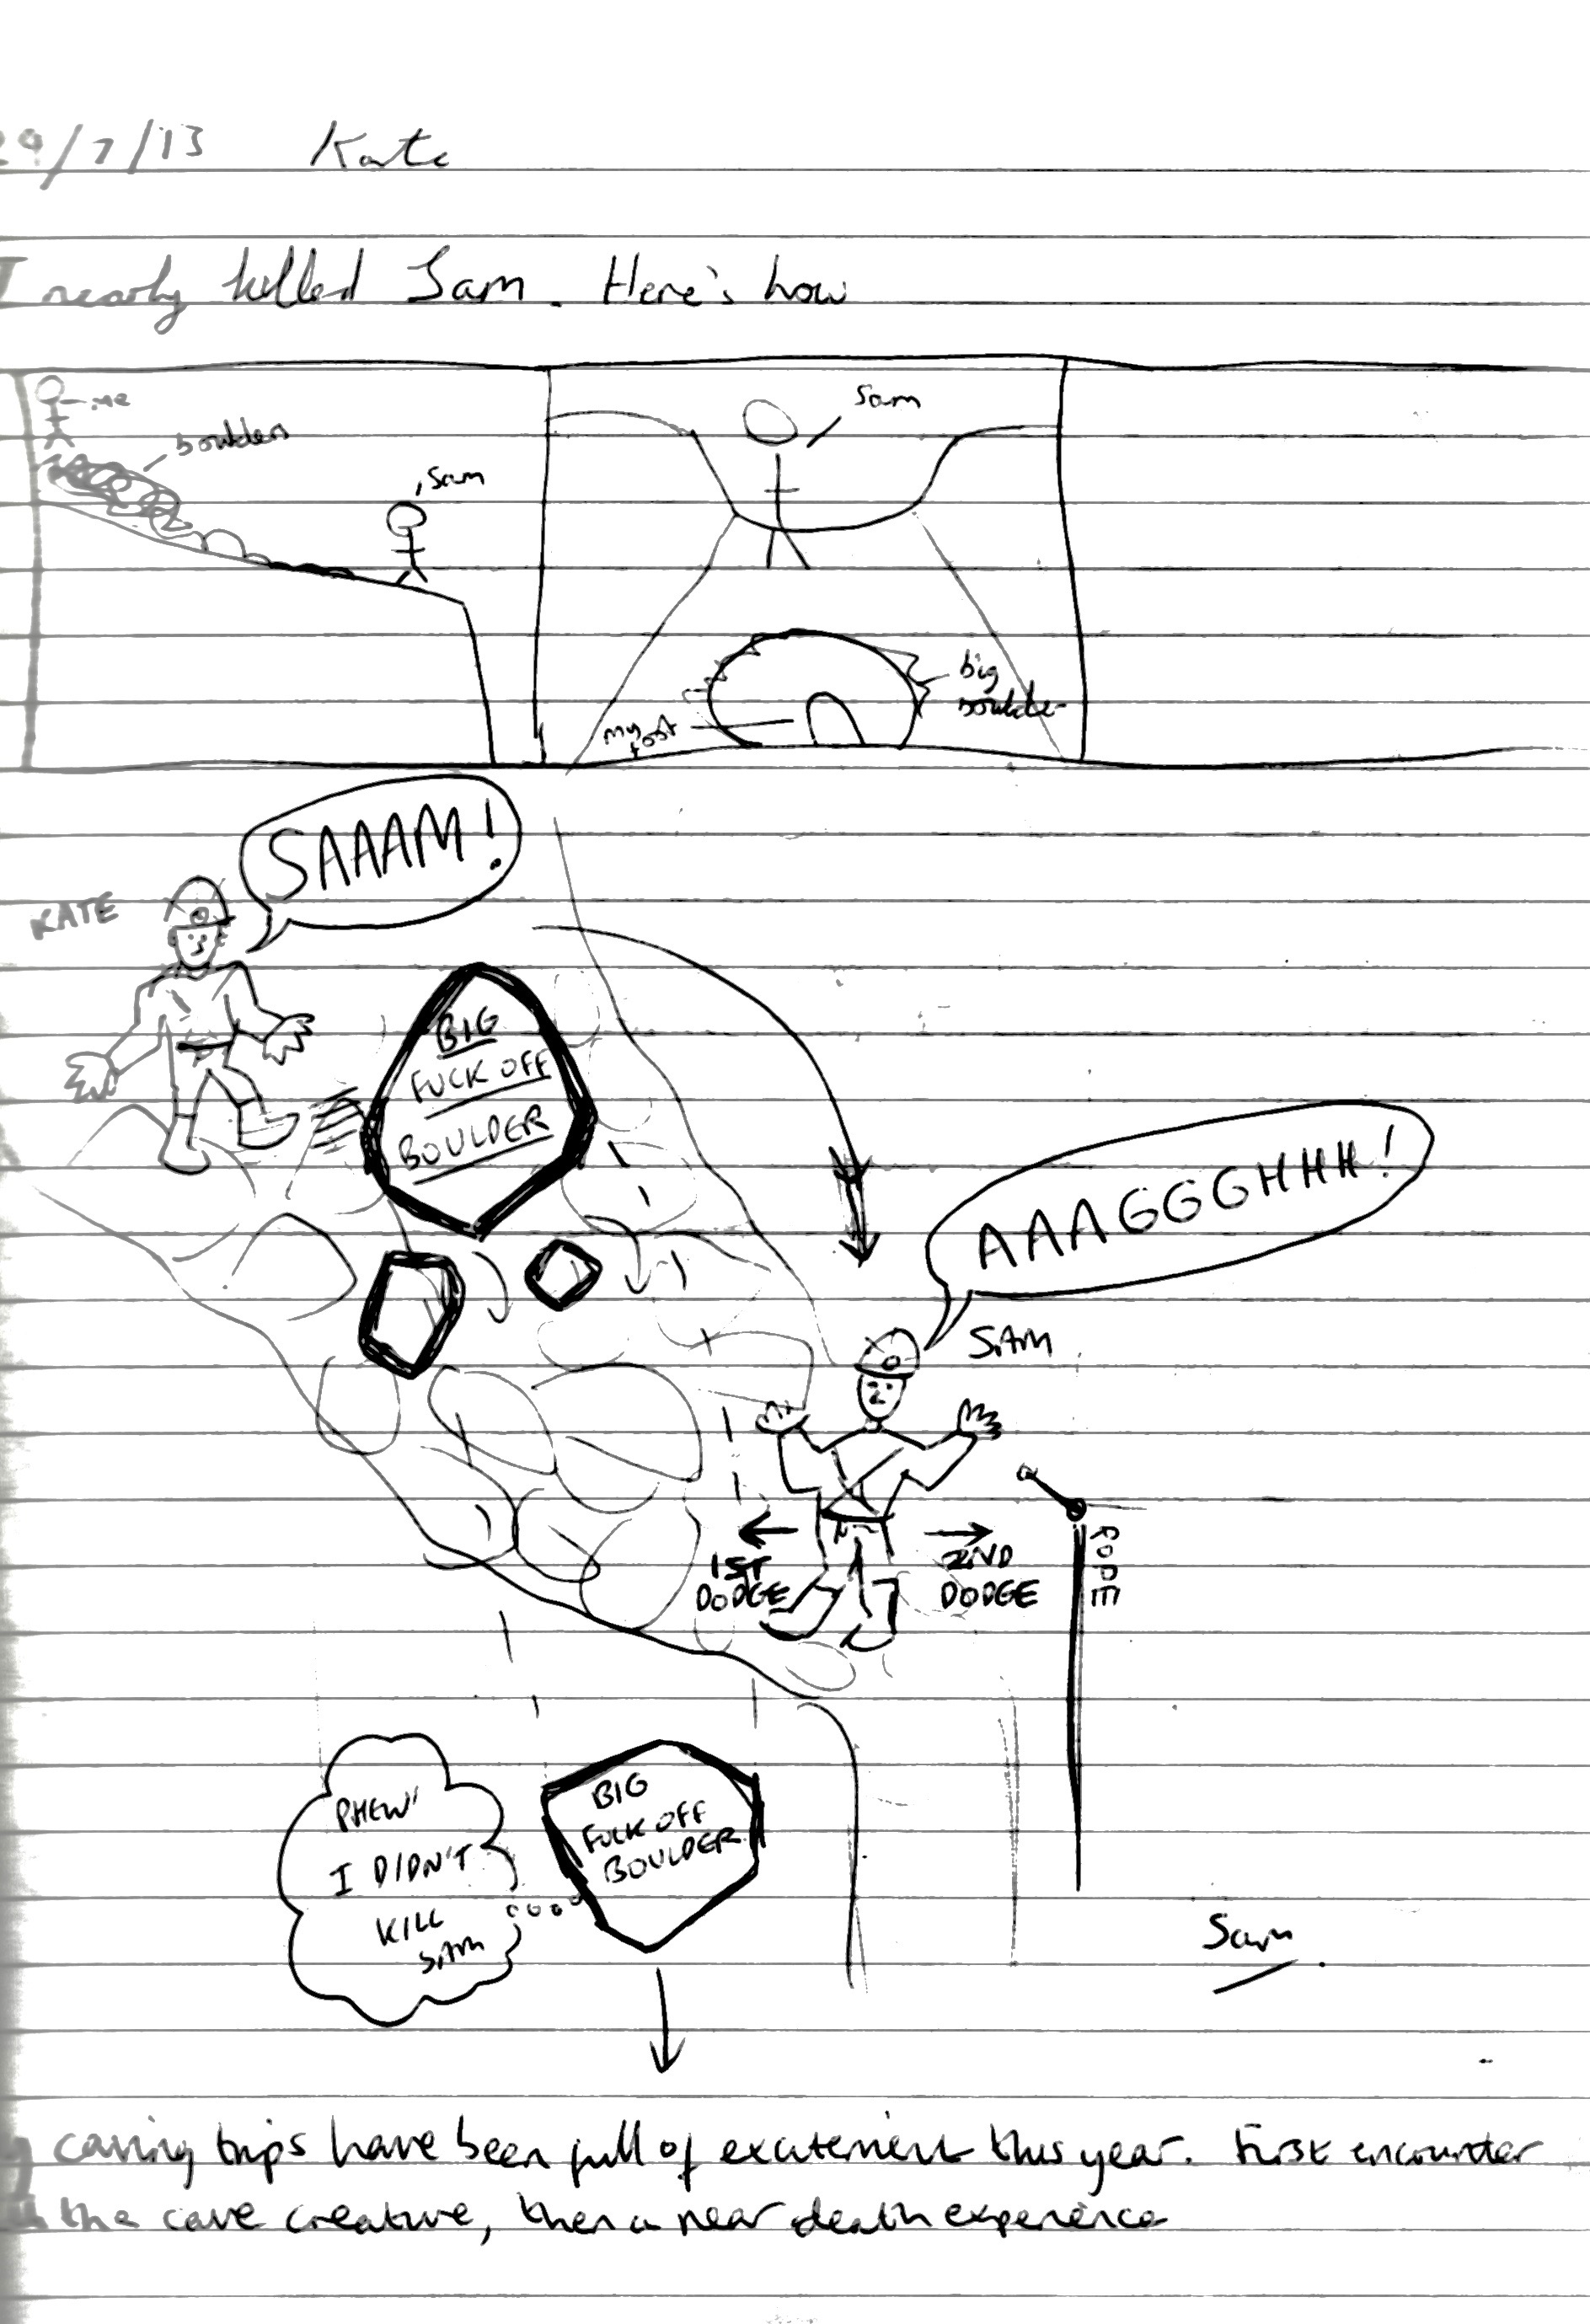 29/7/13 Kate
I nearly killed Sam. Here's how
me
boulders
Sam
Sam
big
boulder
my
foot
SAAAM!
KATE
BIG
FUCK OFF
BOULDER
AAAGGGHHH!
SAM
1ST
DODGE
2ND
DODGE
ROPE
PHEW!
I DIDN'T
KILL
SAM
BIG
FUCK OFF
BOULDER
Sam
caving trips have been full of excitement this year. First encounter
the cave creature, then a near death experience